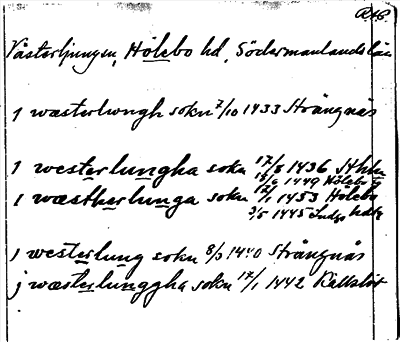 Västerljungen, Hölebo hd, Södermanlands län
j wæsterlwngh sokn 7/10 1433 Strängnäs
j westerlungha sokn 17/8 1436
18/6 1449 Hölebo
j wæstherlunga sokn 12/1 1453 Holebo
3/5 1445
j westerlung sokn 8/3 1440 Strängnäs
j wæsterlunggha sokn 17/1 1442